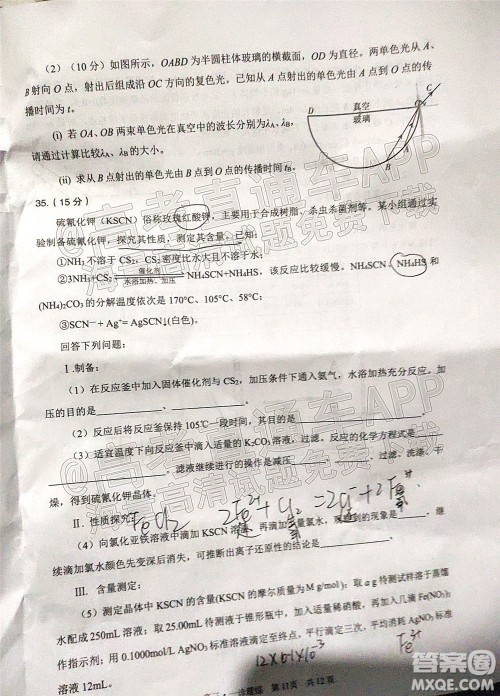 (2)（10分）如图所示，OABD 为半圆柱体玻璃的横截面，OD 为直径。两单色光从 A、
B 射向 O 点，射出后组成沿 OC 方向的复色光。已知从 A 点射出的单色光由 A 点到 O 点的传
播时间为 t。
(i) 若 OA、OB 两束单色光在真空中的波长分别为λA、λB，
请通过计算比较λA、λB 的大小。
(ii) 求从 B 点射出的单色光由 B 点到 O 点的传播时间 tB。
D 真空 O C
玻璃
A
B
35.（15分）
硫氰化钾（KSCN）俗称玫瑰红酸钾，主要用于合成树脂、杀虫杀菌剂等。某小组通过实
验制备硫氰化钾，探究其性质，测定其含量。已知：
①NH3 不溶于 CS2，CS2 密度比水大且不溶于水；
②3NH3+CS2 催化剂 水浴加热、加压 NH4SCN+NH4HS，该反应比较缓慢。NH4SCN、NH4HS 和
(NH4)2CO3 的分解温度依次是 170℃、105℃、58℃；
③SCN⁻ + Ag⁺= AgSCN↓(白色)。
回答下列问题：
Ⅰ.制备：
（1）在反应釜中加入固体催化剂与 CS2，加压条件下通入氨气，水浴加热充分反应。加
压的目的是________、________。
（2）反应后将反应釜保持 105℃一段时间，其目的是________。
（3）适宜温度下向反应釜中滴入适量的 K2CO3 溶液，过滤。反应的化学方程式是____
________。滤液继续进行的操作是减压________、________、过滤、洗涤、干
燥，得到硫氰化钾晶体。
Ⅱ. 性质探究： FeCl2 2Fe²⁺+Cl2=2Cl⁻+2Fe³⁺
（4）向氯化亚铁溶液中滴加 KSCN 溶液，再滴加少量氯水，观察到的现象是____，继
续滴加氯水颜色先变深后消失，可推断出离子还原性的结论是________。
Ⅲ. 含量测定：
（5）测定晶体中 KSCN 的含量(KSCN 的摩尔质量为 M g/mol)：取 a g 待测试样溶于蒸馏
水配成 250mL 溶液；取 25.00mL 待测液于锥形瓶中，加入适量稀硝酸，再加入几滴 Fe(NO3)3
作指示剂；用 0.1000mol/L AgNO3 标准溶液滴定至终点，平行滴定三次，平均消耗 AgNO3 标准
溶液 12mL。 12×0.1×10⁻³ Fe³⁺
第11页 共12页
@高考直通车APP
海量高清试题免费下载
@高考直通车APP
海量高清试题免费下载
答案圈
MXQE.COM